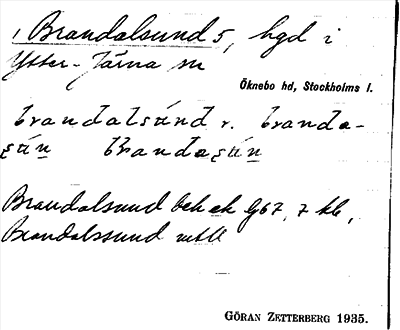 1 Brandalsund 5, hgd i
Ytter-Järna sn
Öknebo hd, Stockholms l.
brandalsúnd r. branda-
sún brandasún
Brandalsund bek ek G67, 7 kb,
Brandalssund
GÖRAN ZETTERBERG 1935.